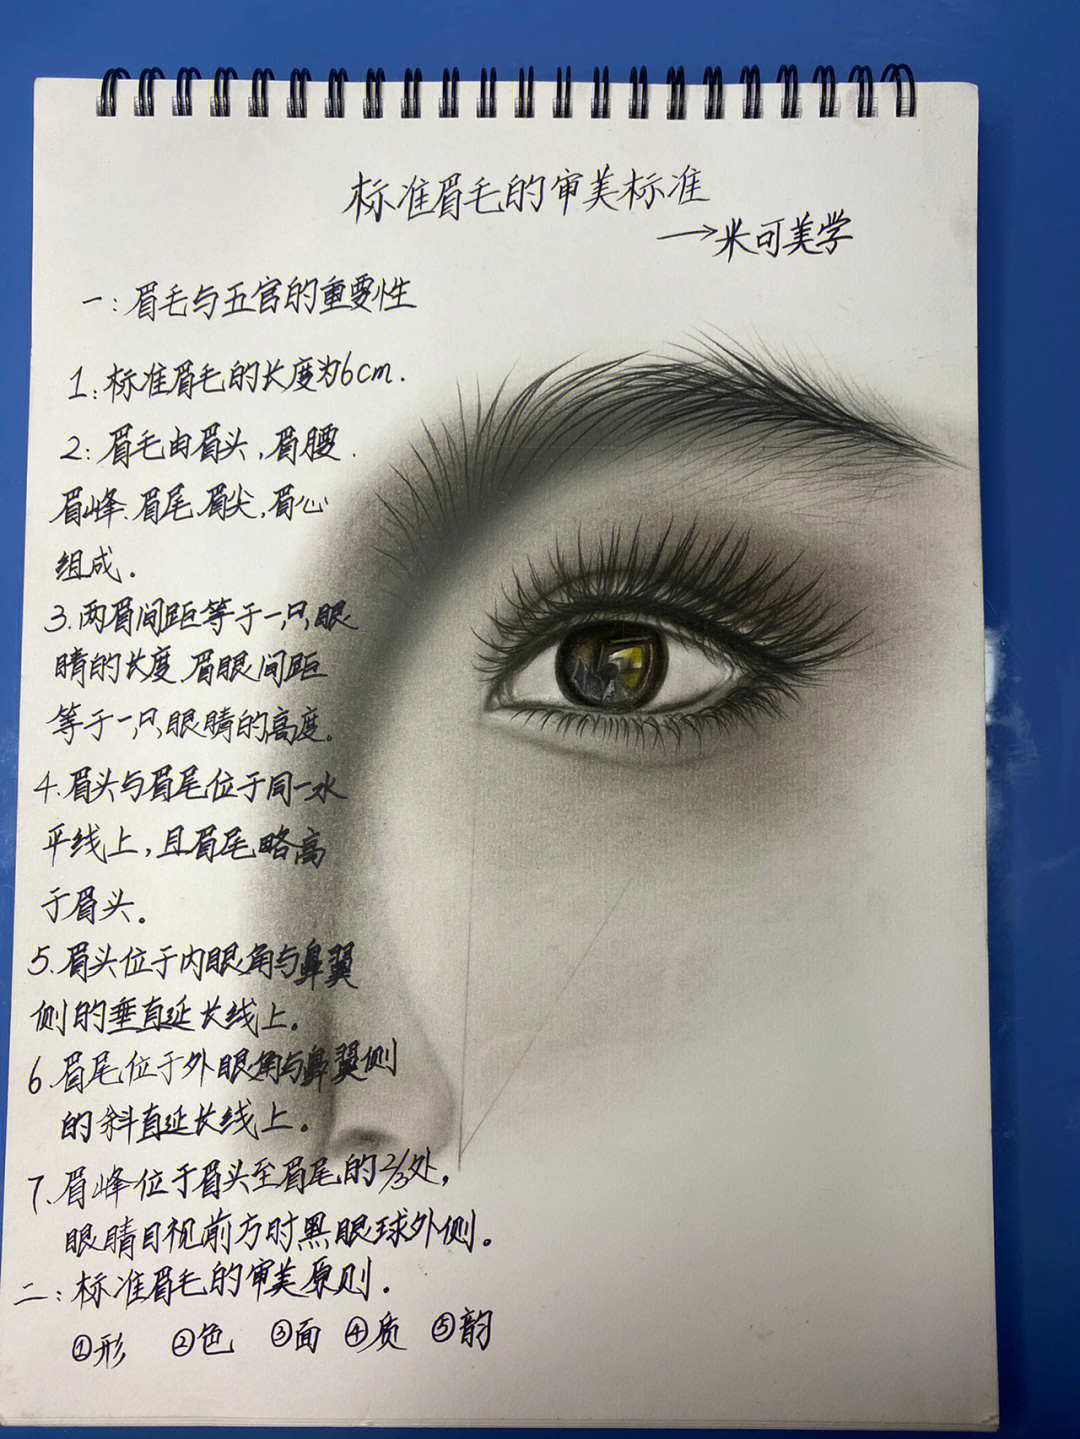 标准眉毛的审美标准
→米可美学
一:眉毛与五官的重要性
1:标准眉毛的长度为6cm.
2:眉毛由眉头,眉腰.
眉峰.眉尾.眉尖,眉心
组成.
3.两眉间距等于一只眼
睛的长度.眉眼间距
等于一只眼睛的高度.
4.眉头与眉尾位于同一水
平线上,且眉尾略高
于眉头。
5.眉头位于内眼角与鼻翼
侧的垂直延长线上。
6.眉尾位于外眼角与鼻翼侧
的斜直延长线上。
7.眉峰位于眉头至眉尾的2/3处,
眼睛目视前方时黑眼球外侧。
二:标准眉毛的审美原则.
①形 ②色 ③面 ④质 ⑤韵